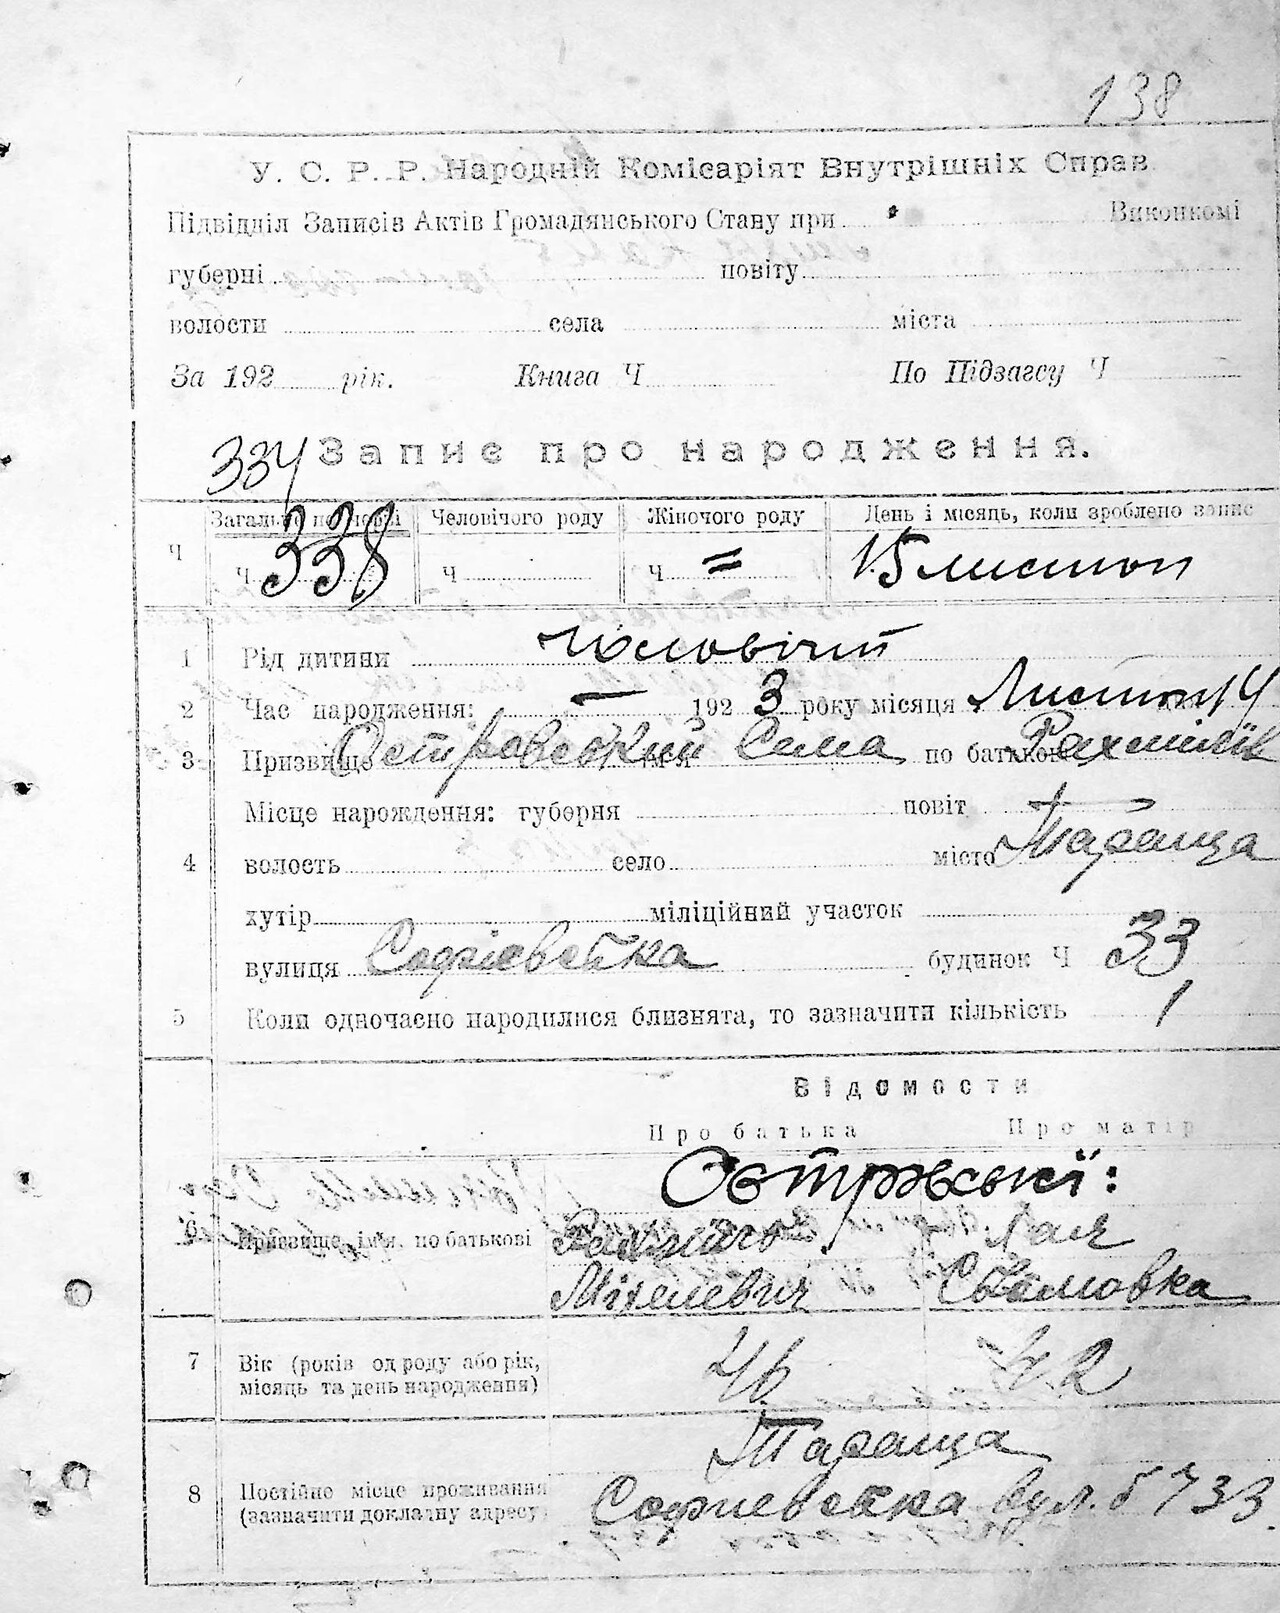 138
У. С. Р. Р. Народній Комісаріят Внутрішніх Справ
Підвідділ Записів Актів Громадянського Стану при Виконкомі
губерні повіту
волости села міста
За 192 рік. Книга Ч По Підзагсу Ч
334 Запис про народження.
Загальне по черзі Человічого роду Жіночого роду День і місяць, коли зроблено запис
Ч Ч 338 Ч Ч = 15 листоп
1 Рід дитини Чоловічий
2 Час народження: — 1923 року місяця Листоп 14
3 Призвище Островський ім'я Сема по батькові
Місце народження: губерня повіт
4 волость село місто Тараща
хутір міліційний участок
вулиця Софієвська будинок Ч 33
5 Коли одночасно народилися близнята, то зазначити кількість 1
Відомости
Про батька Про матір
Островські:
6 Призвище, ім'я, по батькові Хая
Міхелевич
7 Вік (років од роду або рік, 46 42
місяць та день народження)
Тараща
8 Постійне місце проживання
(зазначити докладну адресу) Софиевська вул. б Ч 33